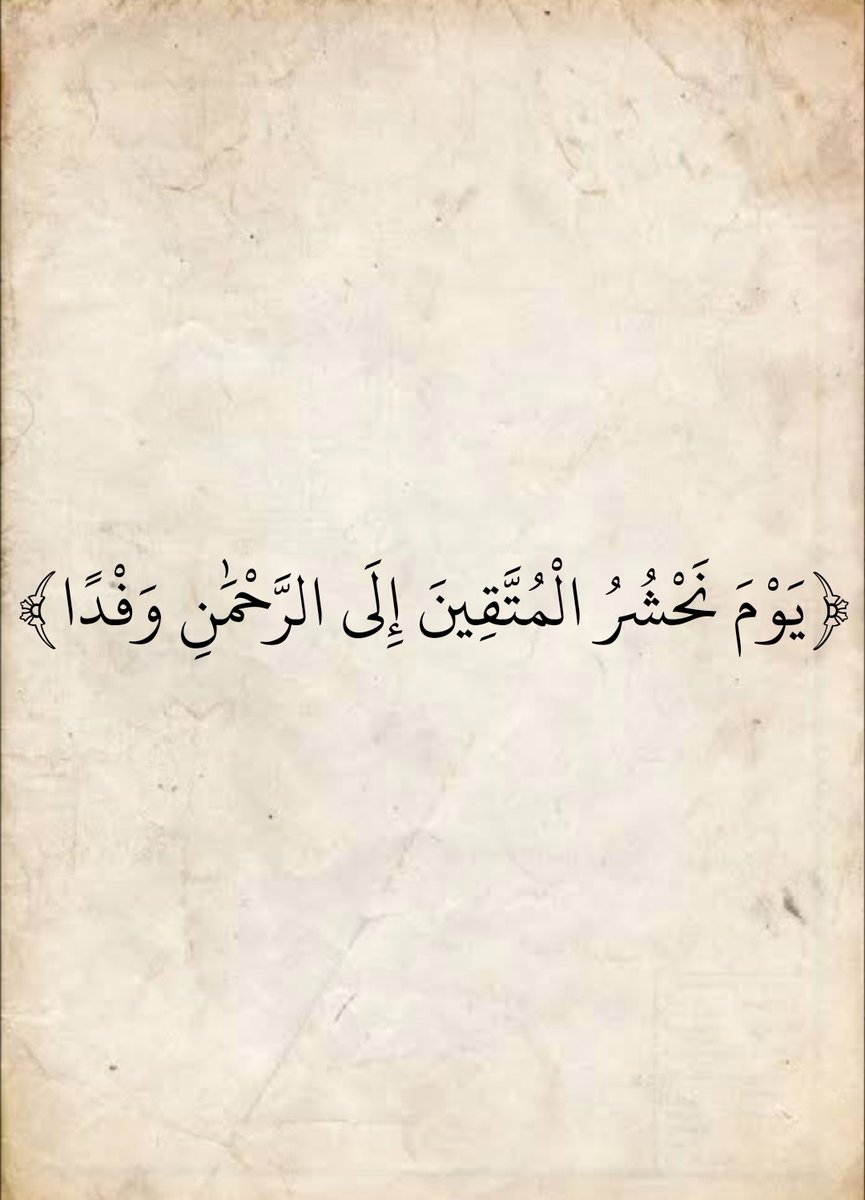 ﴿يَوْمَ نَحْشُرُ الْمُتَّقِينَ إِلَى الرَّحْمَٰنِ وَفْدًا﴾